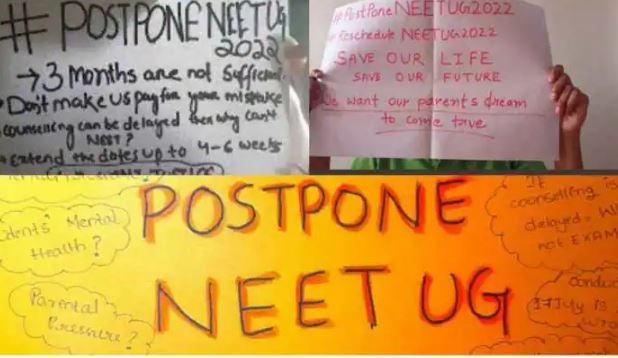 #POSTPONENEETUG
2022
→3 Months are not Sufficient
Don't make us pay for your mistake
counselling can be delayed then why can't
NEET?
extend the dates up to 4-6 weeks
#PostPone NEETUG2022
Reschedule NEETUG2022
SAVE OUR LIFE
SAVE OUR FUTURE
We want our parent's dream
to come true
POSTPONE
NEET UG
dents Mental
Health?
Parental
Pressure?
If
counselling is
delayed
not EXAM
17 July is